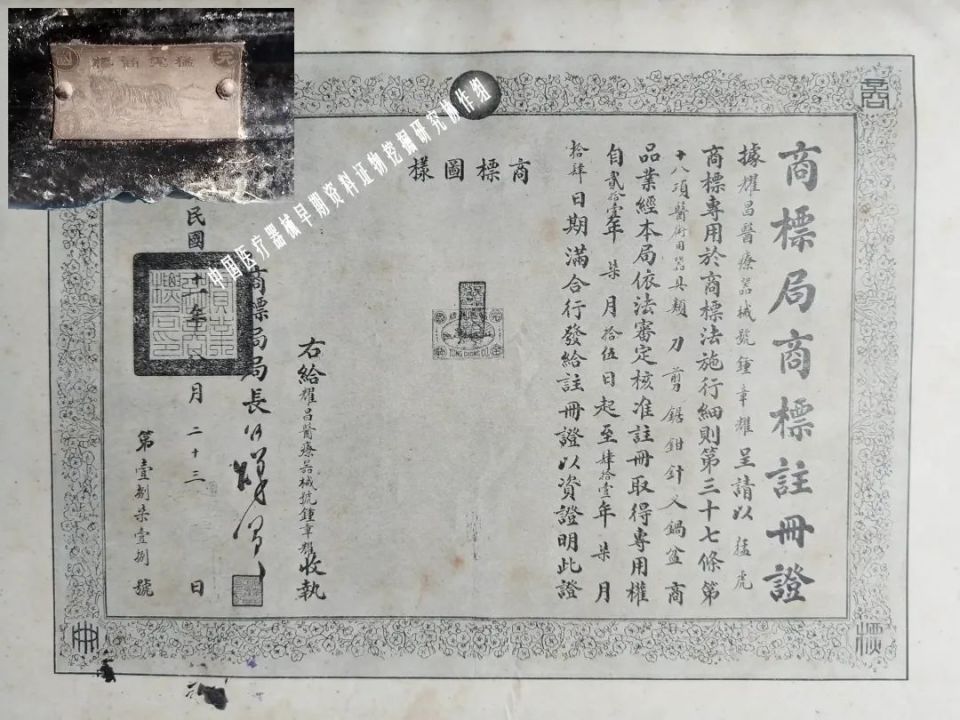 商標局商標註冊證
據耀昌醫療器械號鍾章耀呈請以猛虎
商標專用於商標法施行細則第三十七條第
十八項醫術用器具類刀剪鋸鉗針叉鍋盆商
品業經本局依法審定核准註冊取得專用權
自貳拾壹年柒月拾伍日起至肆拾壹年柒月
拾肆日期滿合行發給註冊證以資證明此證
商標圖樣
右給耀昌醫療器械號鍾章耀收執
商標局局長
民國 十 年 月二十三日
第壹捌柒壹捌號
中国医疗器械早期资料证物挖掘研究协作组
商
標
冊